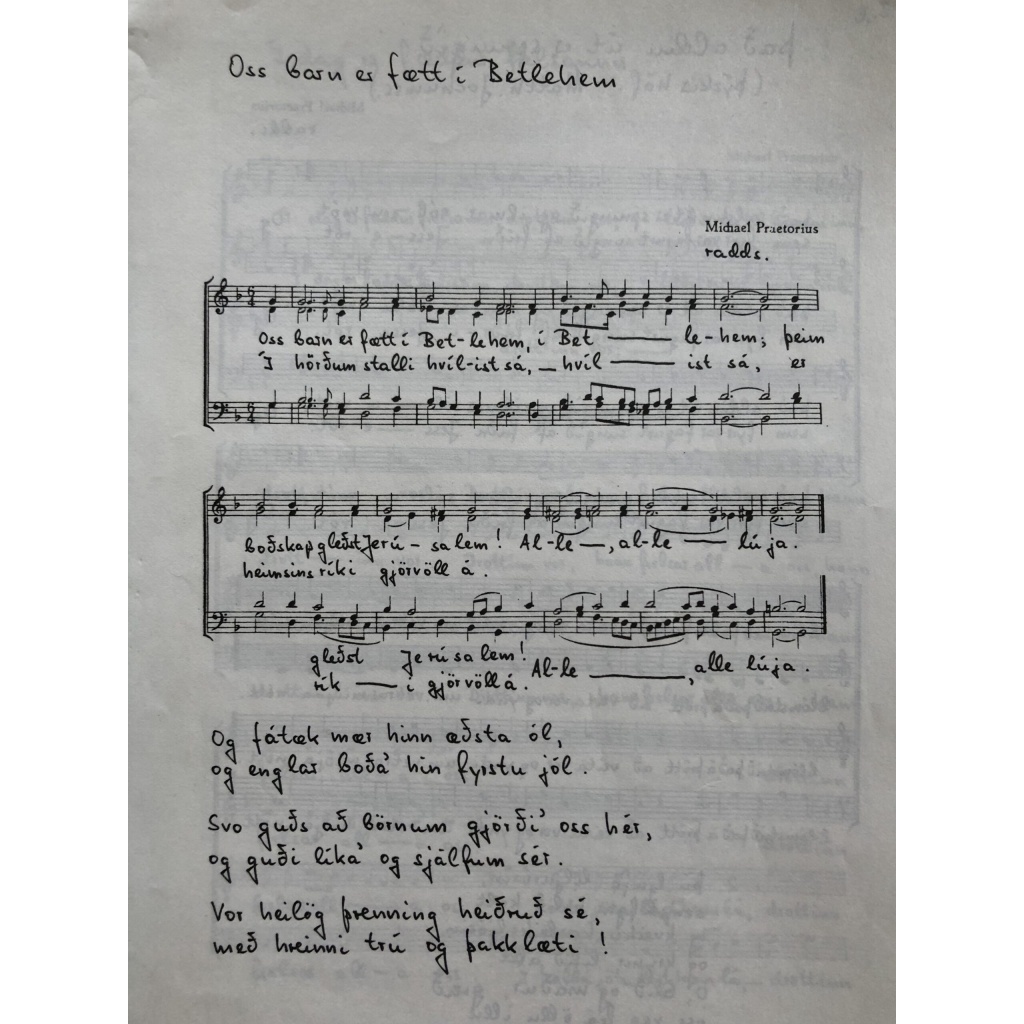 Oss barn er fætt í Betlehem
Michael Praetorius
radds.
Oss barn er fætt í Bet-lehem, í Bet — le-hem; þeim
Í hörðum stalli hvíl-ist sá, — hvíl — ist sá, er
boðskap gleðst Jerú-salem! Al-le —, al-le — lúja.
heimsins ríki gjörvöll á.
gleðst Jerúsalem! Al-le —, alle lúja.
rík — i gjörvöll á.
Og fátæk mær hinn æðsta ól,
og englar boða' hin fyrstu jól.
Svo guðs að börnum gjörði' oss hér,
og guði líka' og sjálfum sér.
Vor heilög þrenning heiðruð sé,
með hreinni trú og þakklæti!